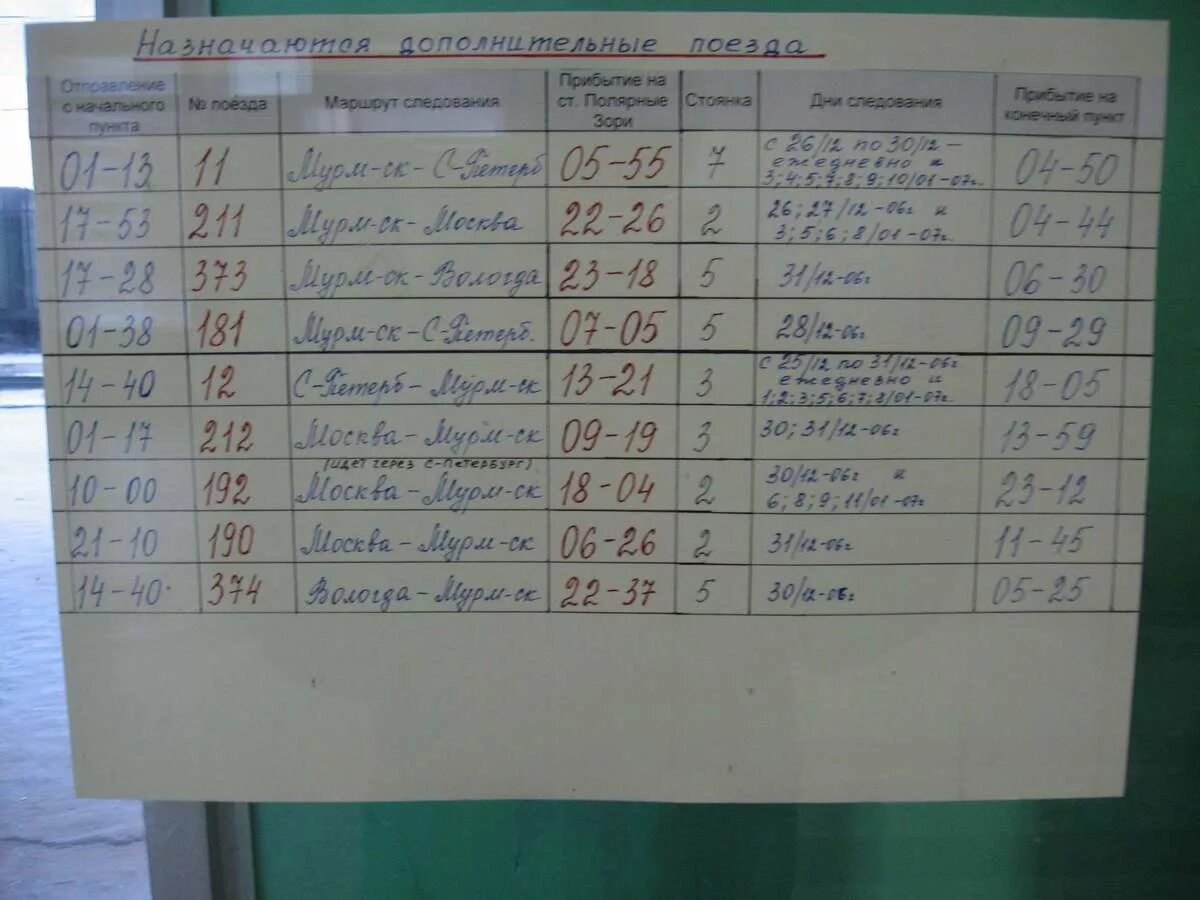 Назначаются дополнительные поезда
Отправление с начального пункта № поезда Маршрут следования Прибытие на ст. Полярные Зори Стоянка Дни следования Прибытие на конечный пункт
01-13 11 Мурм-ск-С-Петерб 05-55 7 с 26/12 по 30/12- ежедневно и 3;4;5;7;8;9;10/01-07г. 04-50
17-53 211 Мурм-ск-Москва 22-26 2 26;27/12-06г и 3;5;6;8/01-07г. 04-44
17-28 373 Мурм-ск-Вологда 23-18 5 31/12-06г 06-30
01-38 181 Мурм-ск-С-Петерб. 07-05 5 28/12-06г 09-29
14-40 12 С-Петерб-Мурм-ск 13-21 3 с 25/12 по 31/12-06г ежедневно и 1;2;3;5;6;7;8/01-07г. 18-05
01-17 212 Москва-Мурм-ск 09-19 3 30;31/12-06г 13-59
(идет через С-Петербург)
10-00 192 Москва-Мурм-ск 18-04 2 30/12-06г и 6;8;9;11/01-07г 23-12
21-10 190 Москва-Мурм-ск 06-26 2 31/12-06г 11-45
14-40 374 Вологда-Мурм-ск 22-37 5 30/12-06г 05-25